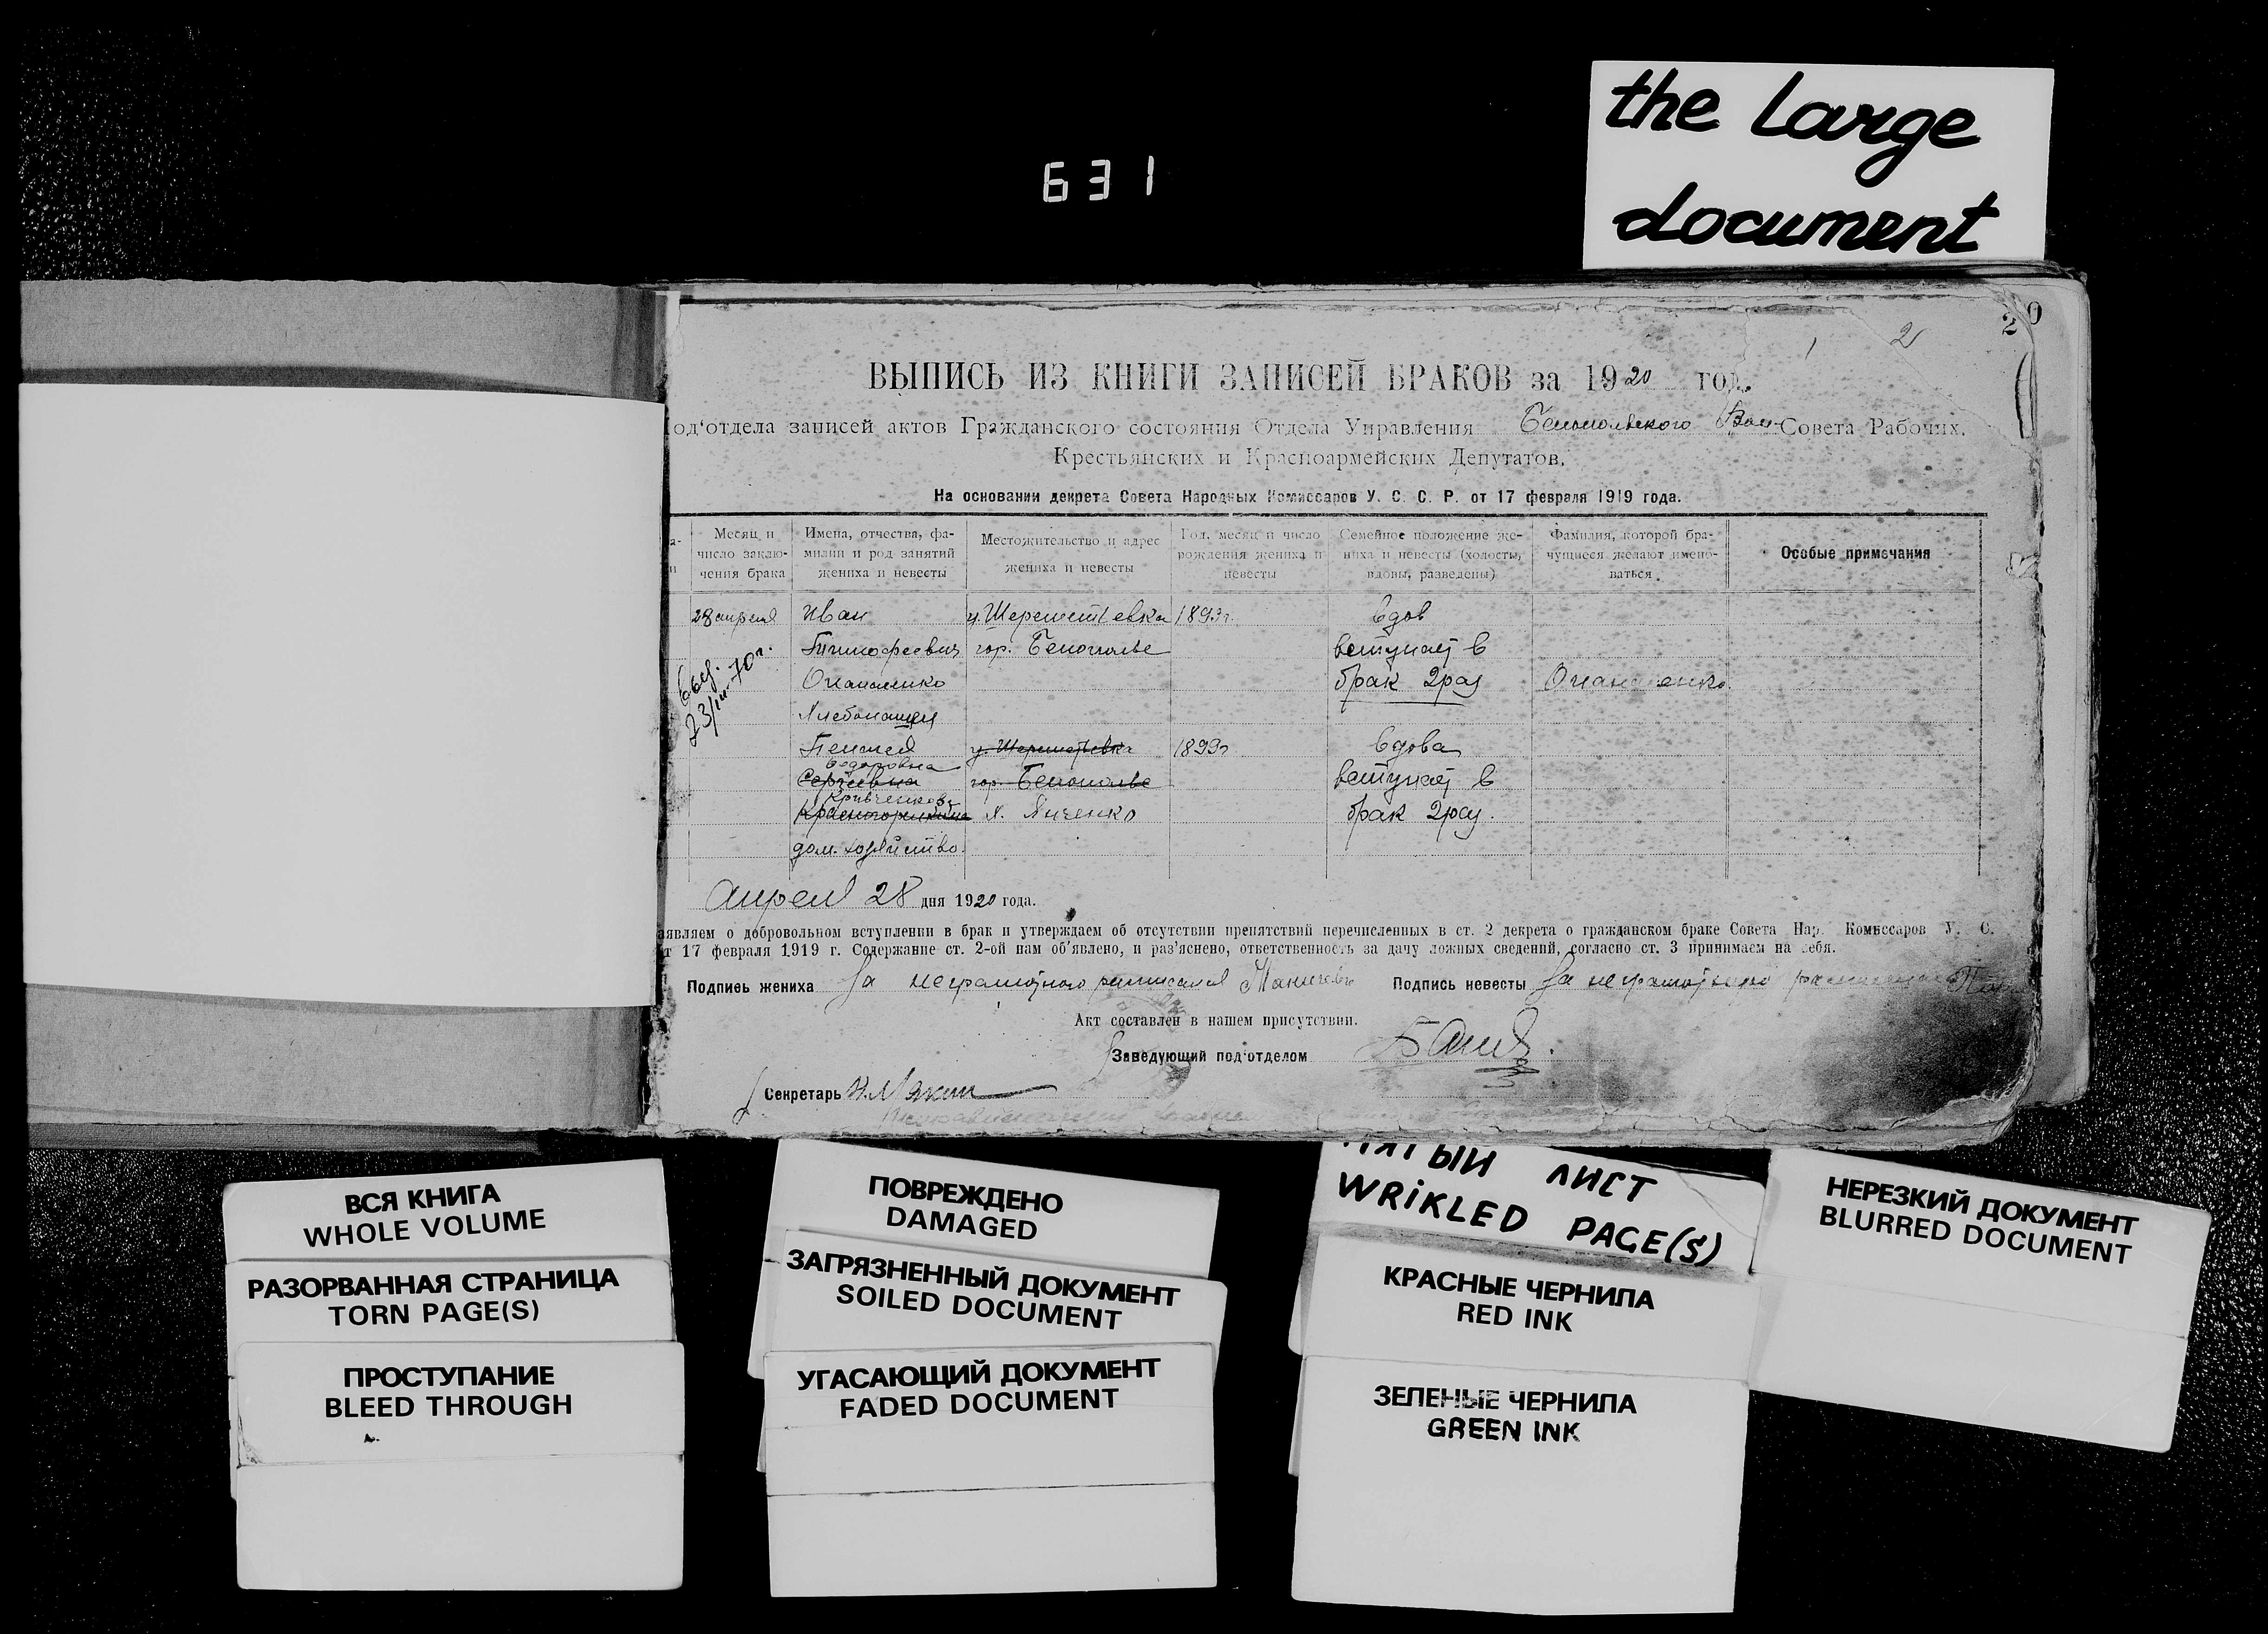 the large
document
631
20
2
ВЫПИСЬ ИЗ КНИГИ ЗАПИСЕЙ БРАКОВ за 1920 год.
од'отдела записей актов Гражданского состояния Отдела Управления Белопольского Вол. Совета Рабочих,
Крестьянских и Красноармейских Депутатов.
На основании декрета Совета Народных Комиссаров У. С. С. Р. от 17 февраля 1919 года.
Месяц и число заклю-чения брака
Имена, отчества, фа-милии и род занятий жениха и невесты
Местожительство и адрес жениха и невесты
Год, месяц и число рождения жениха и невесты
Семейное положение же-ниха и невесты (холосты, вдовы, разведены)
Фамилия, которой бра-чущиеся желают имено-ваться
Особые примечания
28 апреля Иван 1893г. вдов
Тимофеевич гор. Белополье вступает в
брак 2 раз
Хлебопашец
1899г вдова
Федоровна
Сергеевна гор. Белополье вступает в
Кривченкова
х. Янченко брак 2 раз.
дом. хозяйство.
Апреля 28 дня 1920 года.
аявляем о добровольном вступлении в брак и утверждаем об отсутствии препятствий перечисленных в ст. 2 декрета о гражданском браке Совета Нар. Комиссаров У. С.
т 17 февраля 1919 г. Содержание ст. 2-ой нам об'явлено, и раз'яснено, ответственность за дачу ложных сведений, согласно ст. 3 принимаем на себя.
Подпись жениха За неграмотного расписался Подпись невесты За неграмотную
Акт составлен в нашем присутствии.
Заведующий под'отделом
Секретарь
ВСЯ КНИГА
WHOLE VOLUME
РАЗОРВАННАЯ СТРАНИЦА
TORN PAGE(S)
ПРОСТУПАНИЕ
BLEED THROUGH
ПОВРЕЖДЕНО
DAMAGED
ЗАГРЯЗНЕННЫЙ ДОКУМЕНТ
SOILED DOCUMENT
УГАСАЮЩИЙ ДОКУМЕНТ
FADED DOCUMENT
ЛИСТ
WRIKLED PAGE(S)
КРАСНЫЕ ЧЕРНИЛА
RED INK
ЗЕЛЕНЫЕ ЧЕРНИЛА
GREEN INK
НЕРЕЗКИЙ ДОКУМЕНТ
BLURRED DOCUMENT